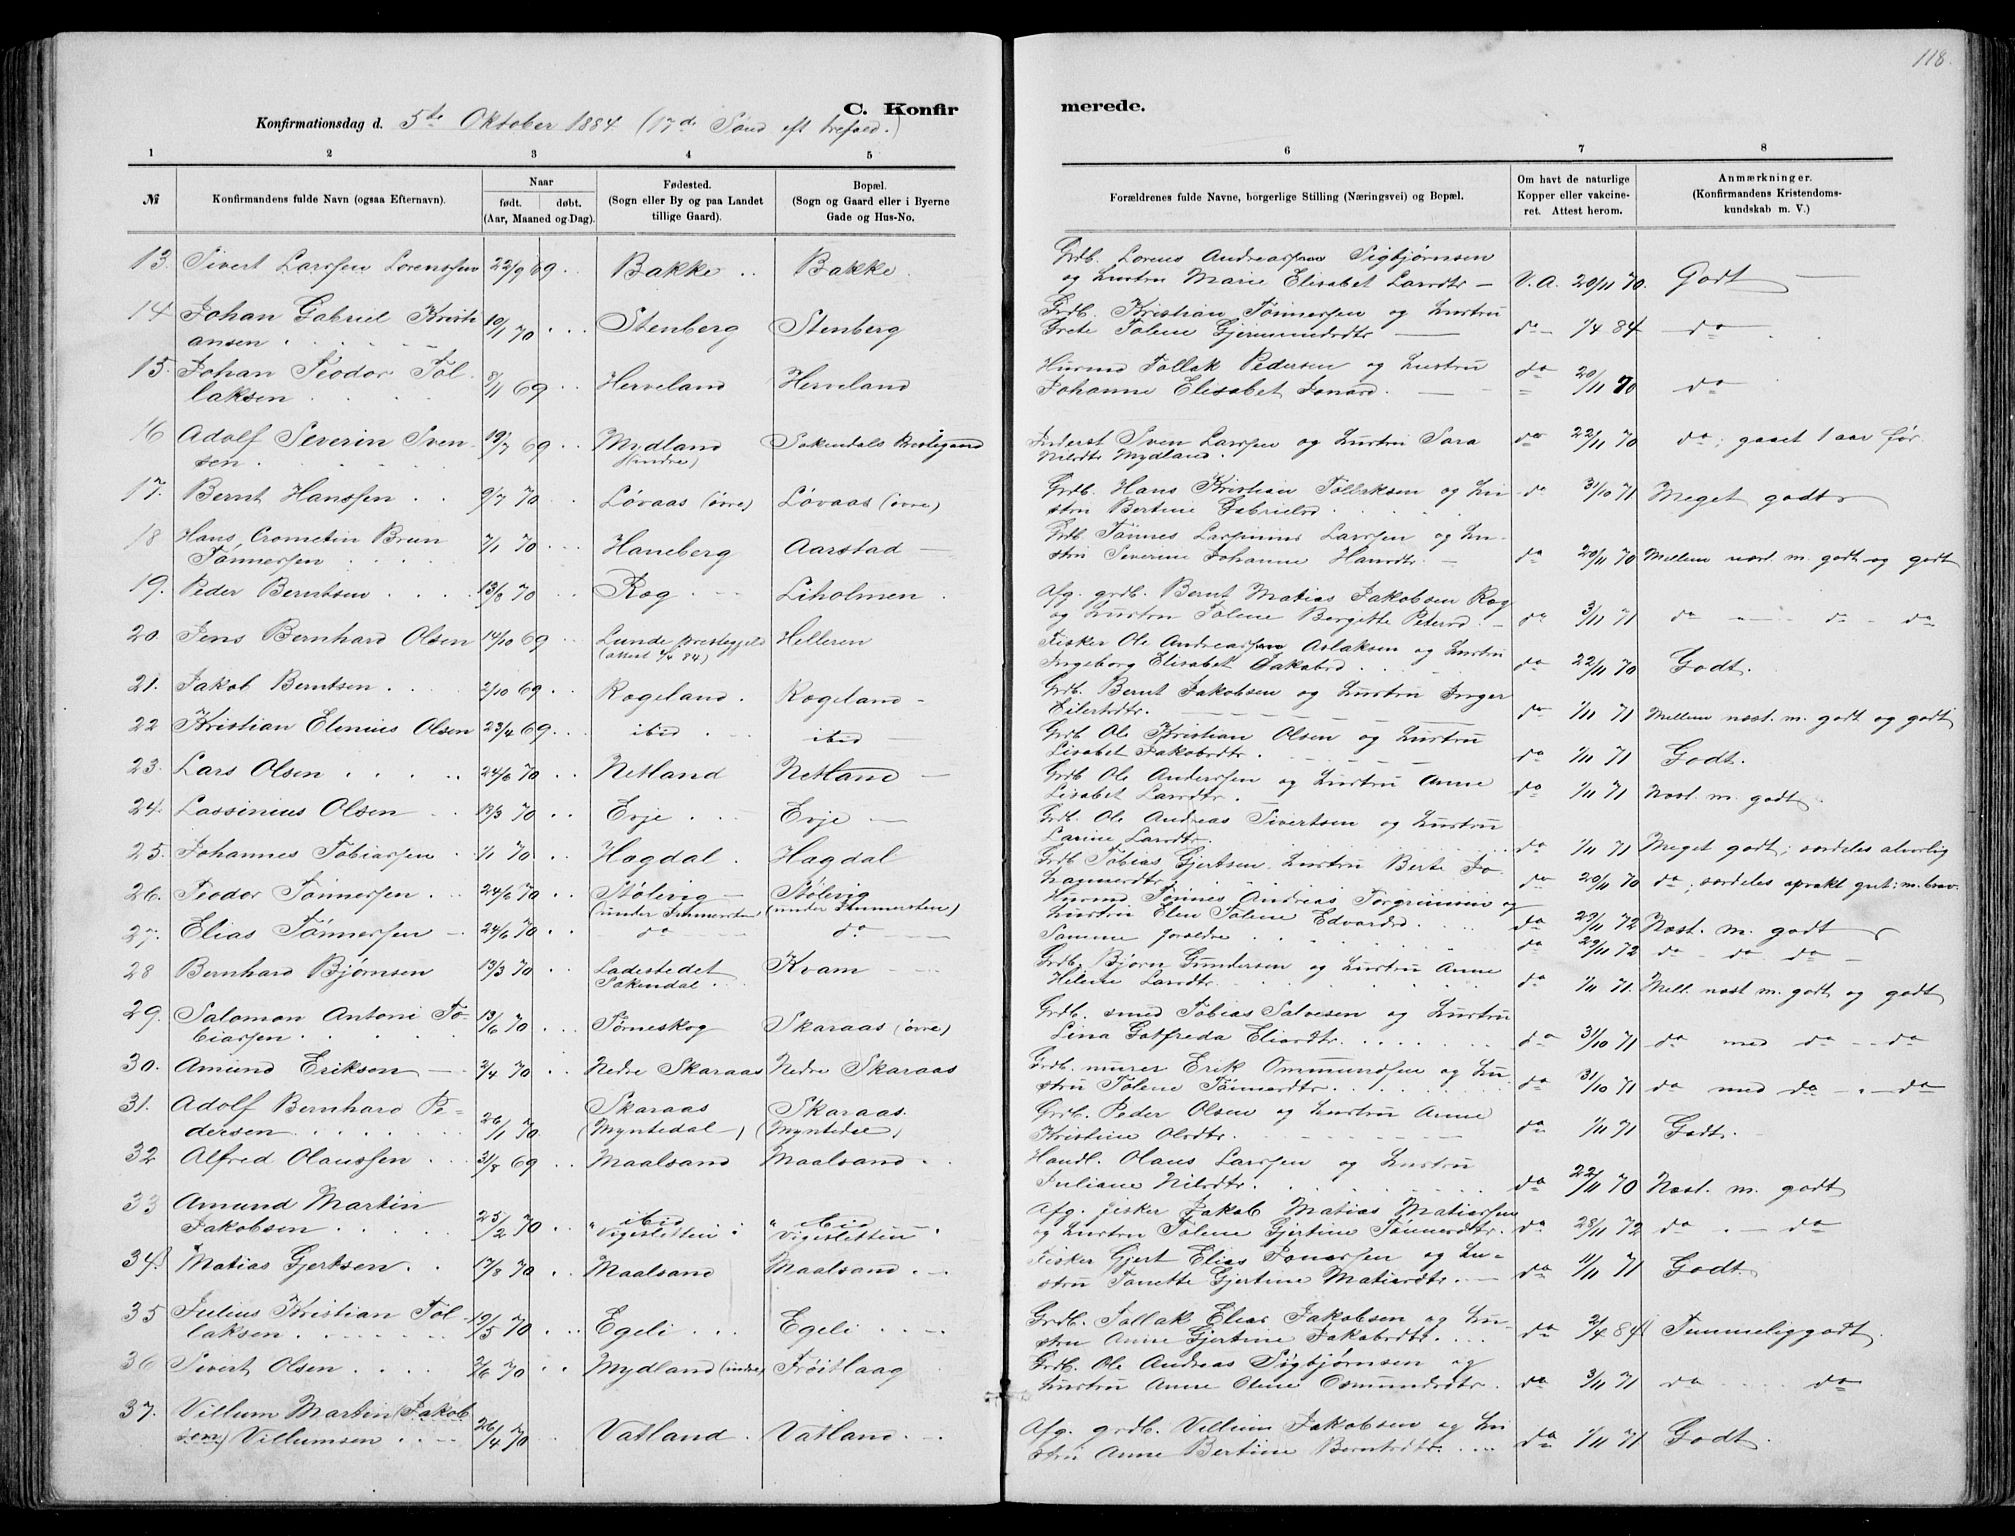 118.
C. Konfirmerede.
Konfirmationsdag d. 5te Oktober 1884 (17de Sønd eft trefold.)
1 2 3 4 5 6 7 8
№
Konfirmandens fulde Navn (ogsaa Efternavn).
Naar
født. døbt.
(Aar, Maaned og Dag).
Fødested.
(Sogn eller By og paa Landet
tillige Gaard).
Bopæl.
(Sogn og Gaard eller i Byerne
Gade og Hus-No.
Forældrenes fulde Navne, borgerlige Stilling (Næringsvei) og Bopæl.
Om havt de naturlige
Kopper eller vakcine-
ret. Attest herom.
Anmærkninger.
(Konfirmandens Kristendoms-
kundskab m. V.)
13. Sivert Larssen Lorenssen 22/9 69 Bakke Bakke
Grdb. Lorens Andreassen Sigbjørnsen
og hustru Marie Elisabet Larsdtr V. A. 20/11 70. Godt
14. Johan Gabriel Kristi
ansen 10/1 70 Stenberg Stenberg
Grdb. Kristian Tønnessen og hustru
Grete Tolene Gjermundsdtr do 1/4 84 do
15. Johan Teodor Tol
laksen 8/11 69 Herveland Herveland
Husmd Tollak Pedersen og hustru
Johanne Elisabet Jonasd. do 20/11 70 do
16 Adolf Severin Sven
sen 19/7 69 Mydland
(indre) Sokendals Prestegaard
Inderst Sven Larssen og hustru Sara
Nilsdtr Mydland. do 22/11 70 do; gaaet 1 aar før
17. Bernt Hanssen 9/7 70 Løvaas (øvre) Løvaas (øvre)
Grdb. Hans Kristian Tollaksen og hu
stru Bertine Gabrielsd do 31/10 71 Meget godt
18 Hans Crometin Brun
Tønnessen 7/1 70 Haneberg Aarstad
Grdb Tønnes Lassinius Larssen og hu
stru Severine Johanne Hansdtr. do 20/11 70 Mellem nost. m. godt og godt
19. Peder Berntsen 13/8 70 Rog Liholmen
Afg. grdb. Bernt Matias Jakobsen Rog
og hustru Tolene Bergette Petersd. do 3/11 71 do do do
20. Jens Bernhard Olsen 14/10 69 Lunde Prestegjeld
(attest 1/4 84) Helleren
Fisker Ole Andreassen Aslaksen og hustru
Ingeborg Elisabet Jakobsd do 22/11 70 Godt.
21. Jakob Berntsen 2/10 69 Rogeland. Rogeland
Grdb. Bernt Jakobsen og hustru Inger
Eilertsdtr. do 1/11 71 Mellem nost. m. godt og godt
22 Kristian Elenius Olsen 23/4 69 ibid ibid
Grdb Ole Kristian Olsen og hustru
Lisabet Jakobsdtr. do 1/11 71 Godt.
23. Lars Olsen 24/6 70 Netland Netland
Grdb Ole Anderssen og hustru Anne
Lisabet Larsdtr. do 1/11 71 Nost. m. godt
24. Lassinius Olsen 13/3 70 Evje Evje
Grdb. Ole Andreas Sivertsen og hustru
Larine Larsdtr. do 1/11 71 Meget godt; særdeles alvorlig
25. Johannes Tobiassen 1/1 70 Hagdal. Hagdal
Grdb Tobias Gjertsen hustru Berte Jo
hannesdtr do 20/11 70 do; særdeles oprakt gut; m. brav.
26. Teodor Tønnessen 24/6 70 Stølevig
(under Immersten) Stølevig
(under Immersten)
Husmd Tønnes Andreas Torgrimsen og
hustru Elen Tolene Edvardsd. do 29/11 72 Nost. m. godt
27. Elias Tønnessen 24/6 70 do do
Samme forældre do 29/11 72 do do do
28 Bernhard Bjørnsen 13/3 70 Ladestedet
Sokendal Kvam
Grdb. Bjørn Gundersen og hustru Anne
Helene Larsdtr do 1/11 71. Mell. nost m. godt og godt
29. Salomon Antoni To
biassen 13/6 70 Tørneskog Skaraas (øvre)
Grdb. smed Tobias Salvesen og hustru
Lina Gotfreda Eliasdtr. do 31/10 71 do med do do
30. Amund Eriksen 2/4 70 Nedre Skaraas Nedre Skaraas
Grdb. murer Erik Ommundsen og hu
stru Tolene Tønnesdtr. do 31/10 71 do med do do
31. Adolf Bernhard Pe-
dersen 26/1 70 Skaraas
(Myntedal) Skaraas
(Myntedal)
Grdb. Peder Olsen og hustru Anne
Kristine Olsdtr. do 1/11 71 Godt.
32 Alfred Olaussen 31/8 69 Maalsand Maalsand
Handl. Olaus Larssen og hustru
Juliane Nilsdtr. do 22/11 70 Nost. m. godt
33 Amund Martin
Jakobsen 25/2 70 ibid
"Vigeslitten ibid
"Vigeslitten
Afg. fisker Jakob Matias Matiassen
og hustru Tolene Gjertine Tønnesdtr. do 28/11 72 do do
34. Matias Gjertsen 17/3 70 Maalsand Maalsand
Fisker Gjert Elias Jonassen og hu-
stru Tonette Gjertine Matiasdtr. do 11/11 71 Godt
35 Julius Kristian Tol
laksen 19/5 70 Egeli Egeli
Grdb. Tollak Elias Jakobsen og hu
stru Anne Gjertine Jakobsdtr. do 2/4 84 Temmelig godt.
36 Sivert Olsen 2/6 70 Mydland (indre) Frøitlaag
Grdb. Ole Andreas Sigbjørnsen og
hustru Anne Oline Osmundsdtr. do 3/11 71 do do
37. Villum Martin (Jakob
sen) Villumsen 26/4 70 Vatland Vatland
Afg. grdb. Villum Jakobsen og hu
stru Anne Bertine Berntsdtr. do 1/11 71 Godt